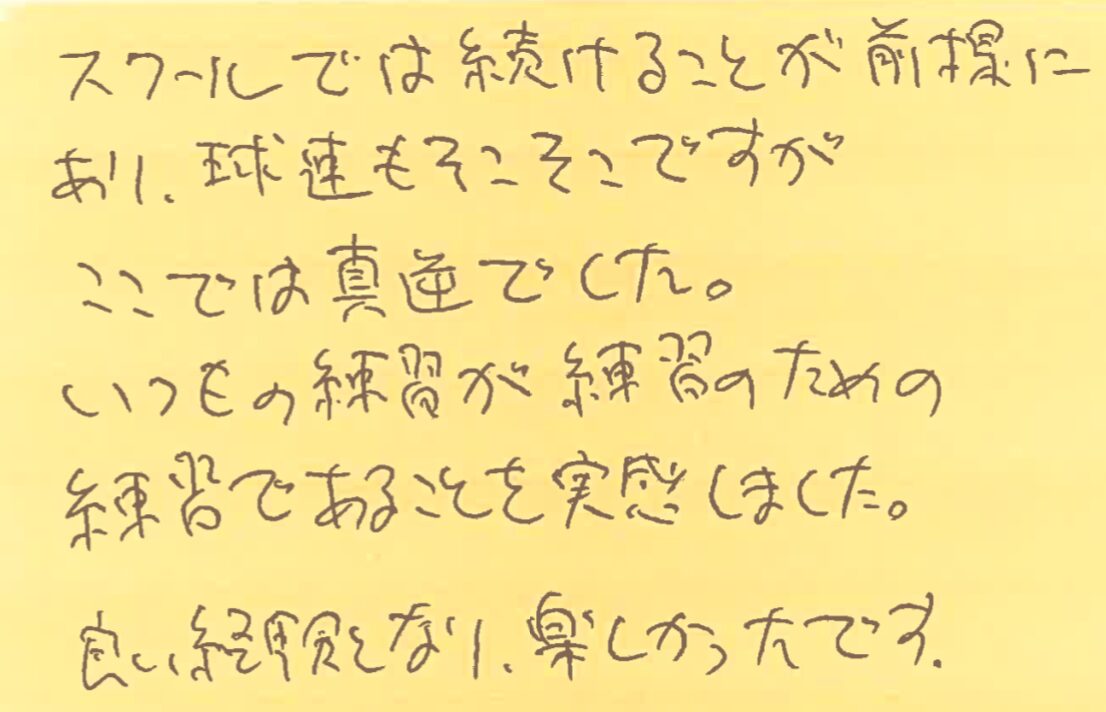 スクールでは続けることが前提に
あり、球速もそこそこですが
ここでは真逆でした。
いつもの練習が練習のための
練習であることを実感しました。
良い経験となり、楽しかったです.